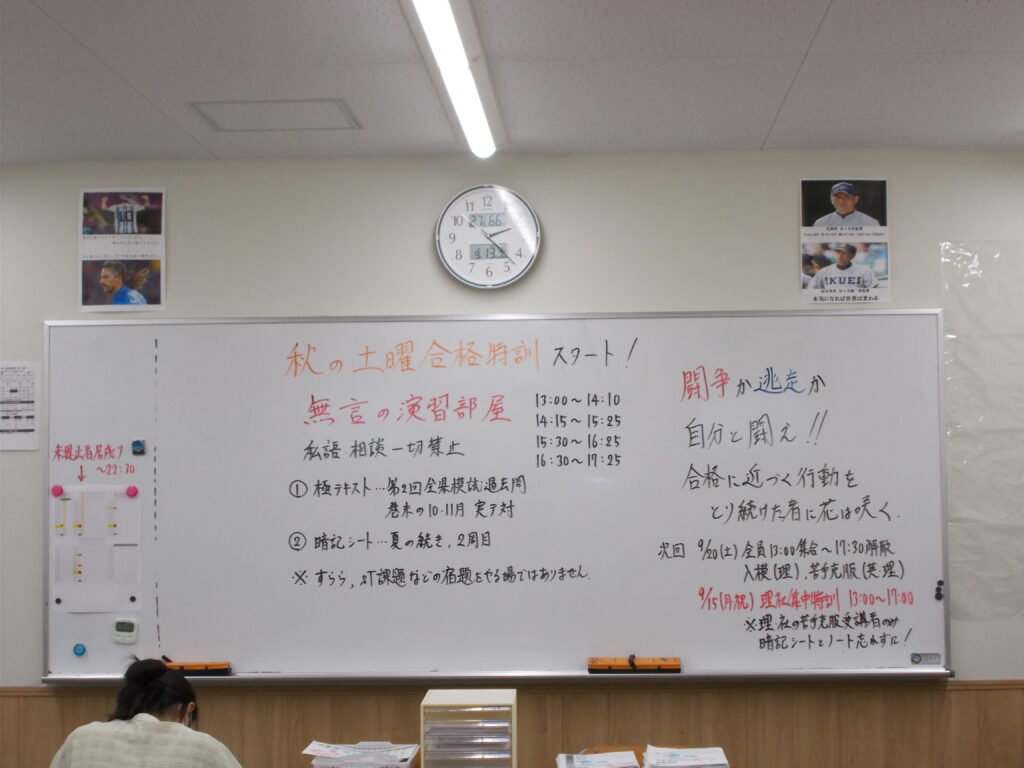 秋の土曜合格特訓 スタート!
無言の演習部屋
私語・相談一切禁止
13:00~14:10
14:15~15:25
15:30~16:25
16:30~17:25
① 極テキスト…第2回全県模試過去問
巻末の10・11月 実テ対
② 暗記シート…夏の続き, 2周目
※ すらら, ST課題などの宿題をやる場ではありません.
闘争か逃走か
自分と闘え!!
合格に近づく行動を
とり続けた者に花は咲く.
次回 9/20(土) 全員13:00集合~17:30解散
入模(理), 苦手克服(英・理)
9/15(月・祝) 理社集中特訓 13:00~17:00
※理・社の苦手克服受講者のみ
暗記シートとノート忘れずに!
未提出者居残り
~22:30
本気になれば世界は変わる
IKUEI
10
12
11
10
9
8
7
6
5
4